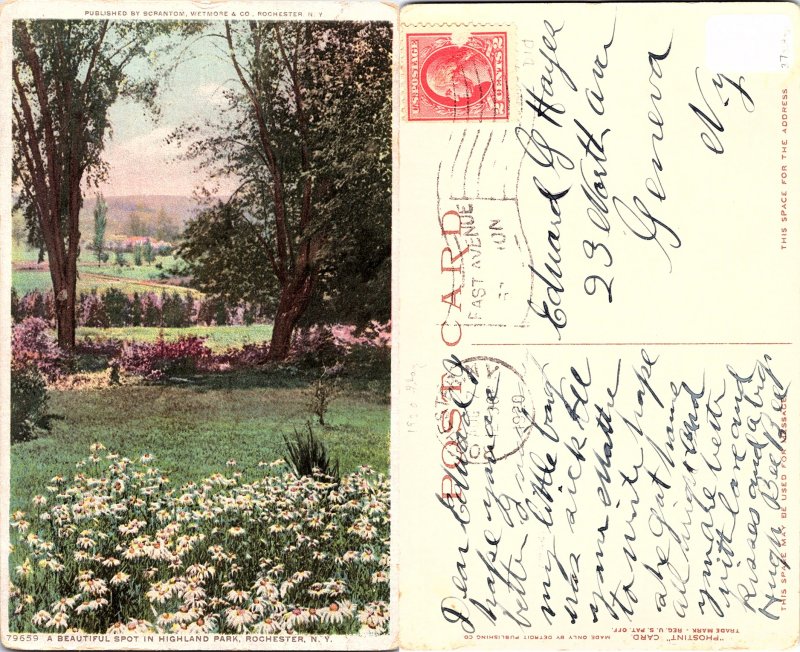 PUBLISHED BY SCRANTOM, WETMORE & CO., ROCHESTER N. Y.
79659 A BEAUTIFUL SPOT IN HIGHLAND PARK, ROCHESTER, N. Y.
U.S. POSTAGE
2 CENTS 2
EAST AVENUE
1920
POST CARD
Edward G Hayes
23 North ave
Geneva
N-y
THIS SPACE FOR THE ADDRESS
Dear Edward I
hope you are
better
my little boy
was sick tell
your Mother
to write hope
she got home
all right and
you are better
with love and
kisses and a big
Hugh
THIS SPACE MAY BE USED FOR MESSAGE
"PHOSTINT" CARD.
MADE ONLY BY DETROIT PUBLISHING CO
TRADE MARK - REG. U. S. PAT. OFF.